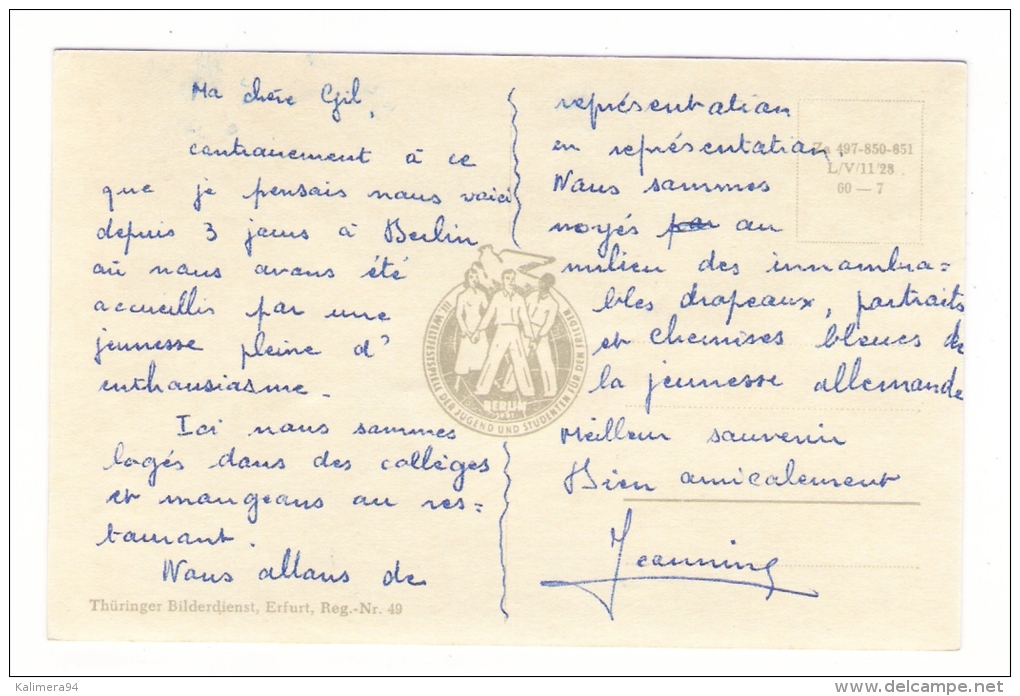 Ma chère Gil,
contrairement à ce
que je pensais nous voici
depuis 3 jours à Berlin
où nous avons été
accueillis par une
jeunesse pleine d'
enthousiasme.
Ici nous sommes
logés dans des collèges
et mangeons au res=
taurant.
Nous allons de
représentation
en représentation.
Nous sommes
noyés par au
milieu des innombra=
bles drapeaux, portraits
et chemises bleues de
la jeunesse allemande
Meilleur souvenir
Bien amicalement
Jeannine
Za 497-850-651
L/V/11/28
60 — 7
III. WELTFESTSPIELE DER JUGEND UND STUDENTEN FÜR DEN FRIEDEN
BERLIN
1951
Thüringer Bilderdienst, Erfurt, Reg.-Nr. 49
Kalimera94
delcampe.net